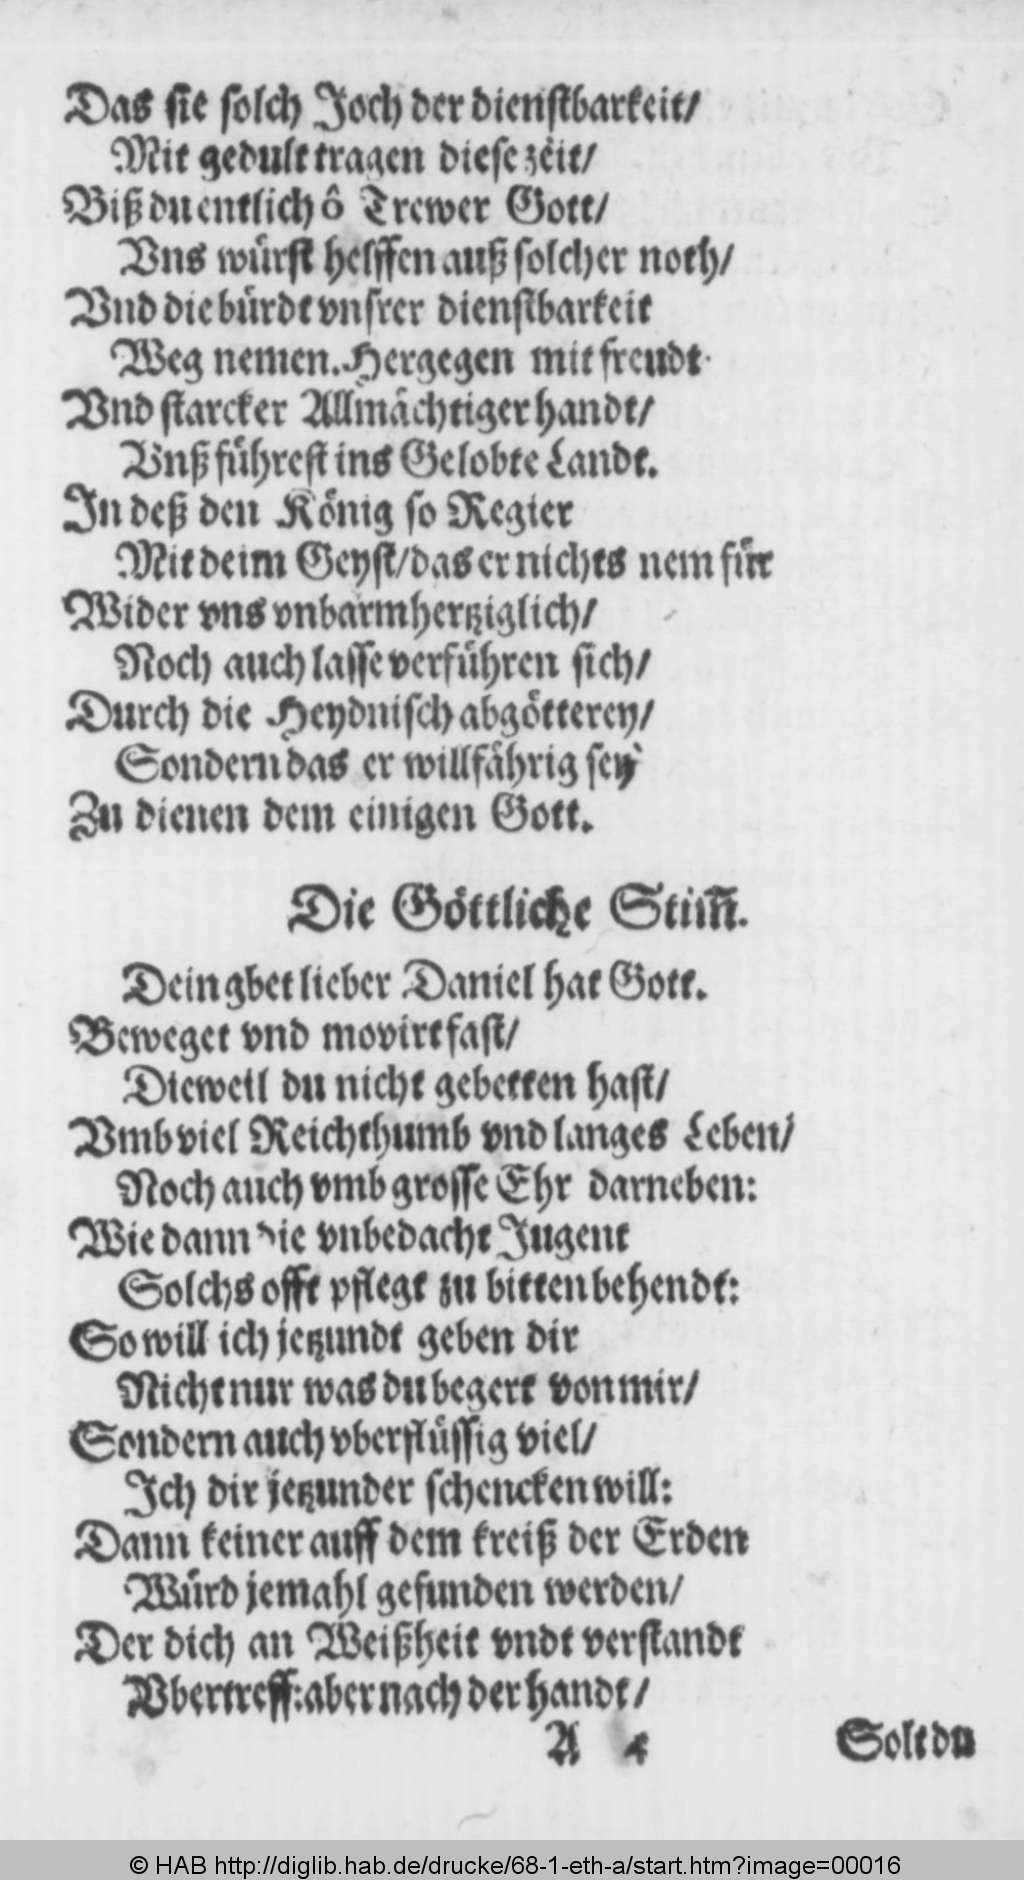 Das sie solch Joch der dienstbarkeit/
Mit gedult tragen diese zeit/
Biß du entlich ô Trewer Gott/
Vns würst helffen auß solcher noth/
Vnd die bürdt vnsrer dienstbarkeit
Weg nemen. Hergegen mit freudt
Vnd starcker Allmächtiger handt/
Vnß führest ins Gelobte Landt.
In deß den König so Regier
Mit deim Geyst/ das er nichts nem für
Wider vns vnbarmhertziglich/
Noch auch lasse verführen sich/
Durch die Heydnisch abgötterey/
Sondern das er willfährig sey
Zu dienen dem einigen Gott.
Die Göttliche Stim̅.
Dein gbet lieber Daniel hat Gott.
Beweget vnd movirt fast/
Dieweil du nicht gebetten hast/
Vmb viel Reichthumb vnd langes Leben/
Noch auch vmb grosse Ehr darneben:
Wie dann die vnbedacht Jugent
Solchs offt pflegt zu bitten behendt:
So will ich jetzundt geben dir
Nicht nur was du begert von mir/
Sondern auch vberflüssig viel/
Ich dir jetzunder schencken will:
Dann keiner auff dem kreiß der Erden
Würd jemahl gefunden werden/
Der dich an Weißheit vndt verstandt
Vbertreff: aber nach der handt/
A 4 Solt du
© HAB http://diglib.hab.de/drucke/68-1-eth-a/start.htm?image=00016